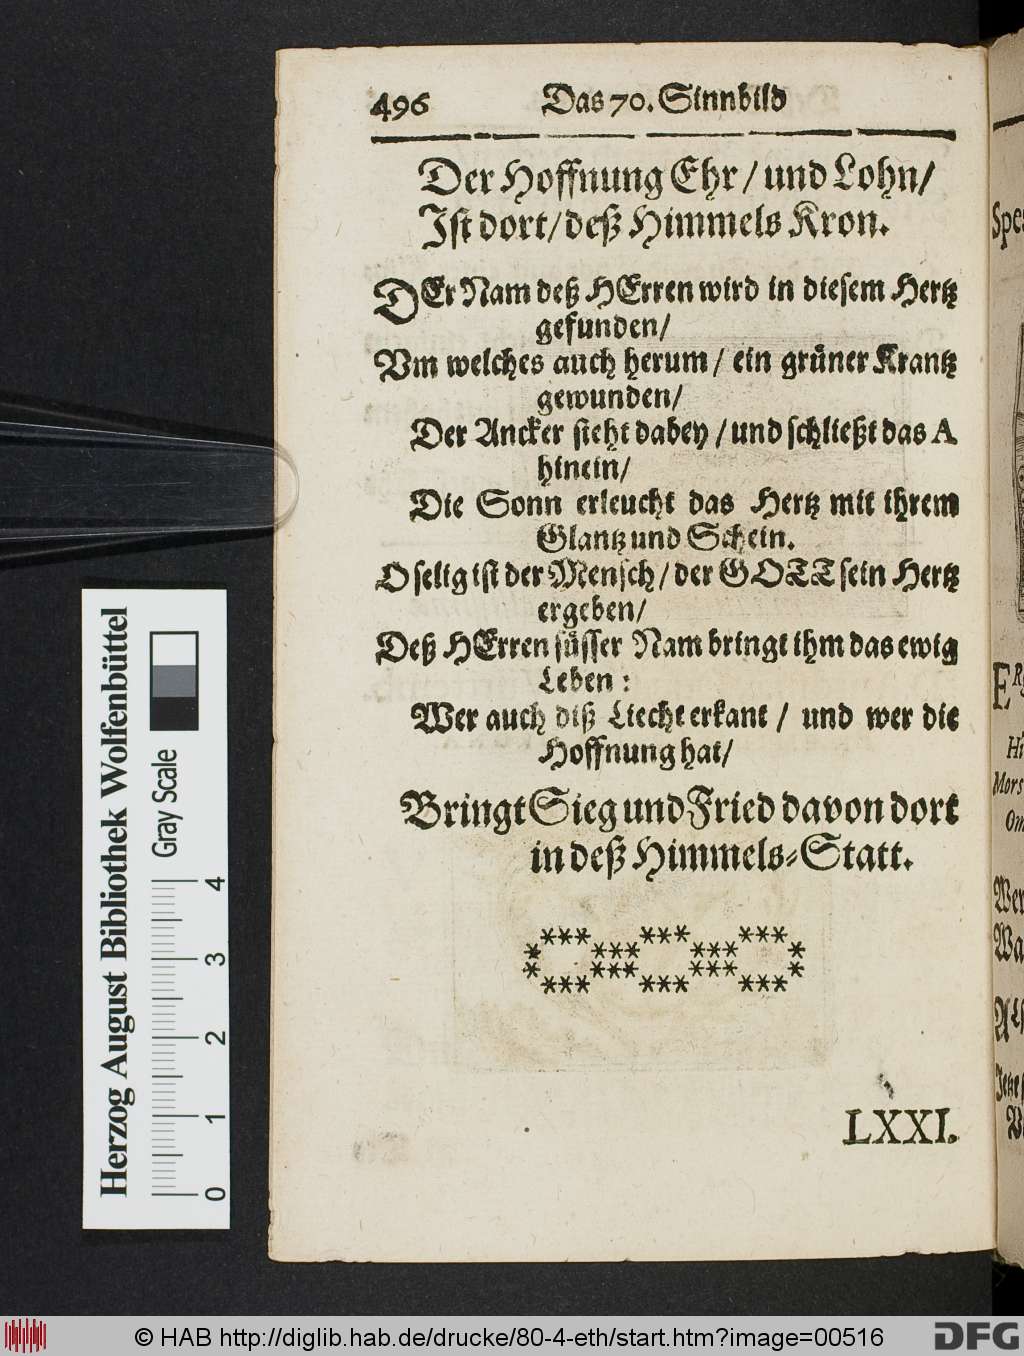 496 Das 70. Sinnbild
Der Hoffnung Ehr / und Lohn /
Ist dort / deß Himmels Kron.
DEr Nam deß HErren wird in diesem Hertz
gefunden /
Vm welches auch herum / ein grüner Krantz
gewunden /
Der Ancker steht dabey / und schließt das A
hinein /
Die Sonn erleucht das Hertz mit ihrem
Glantz und Schein.
O selig ist der Mensch / der GOTT sein Hertz
ergeben /
Deß HErren süsser Nam bringt ihm das ewig
Leben :
Wer auch diß Liecht erkant / und wer die
Hoffnung hat /
Bringt Sieg und Fried davon dort
in deß Himmels-Statt.
LXXI.
Spes
ER
Hi
Mors
Om
Wer
Wa
Herzog August Bibliothek Wolfenbüttel
Gray Scale
0 1 2 3 4
© HAB http://diglib.hab.de/drucke/80-4-eth/start.htm?image=00516
DFG